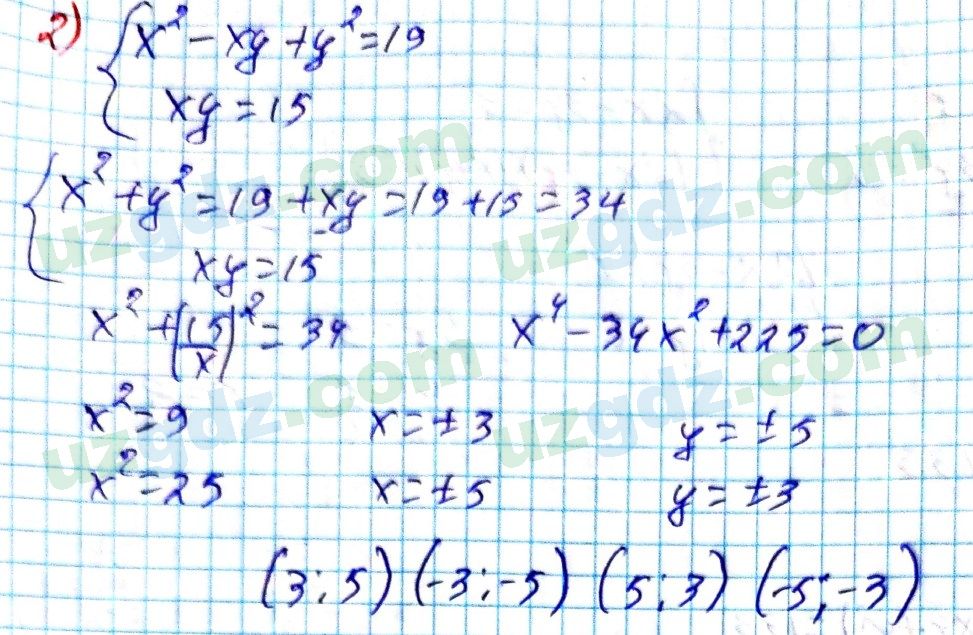 2) { x² - xy + y² = 19
xy = 15
{ x² + y² = 19 + xy = 19 + 15 = 34
xy = 15
x² + (15/x)² = 34    x⁴ - 34x² + 225 = 0
x² = 9    x = ±3    y = ±5
x² = 25    x = ±5    y = ±3
(3; 5) (-3; -5) (5; 3) (-5; -3)
uzgdz.com
uzgdz.com
uzgdz.com
uzgdz.com